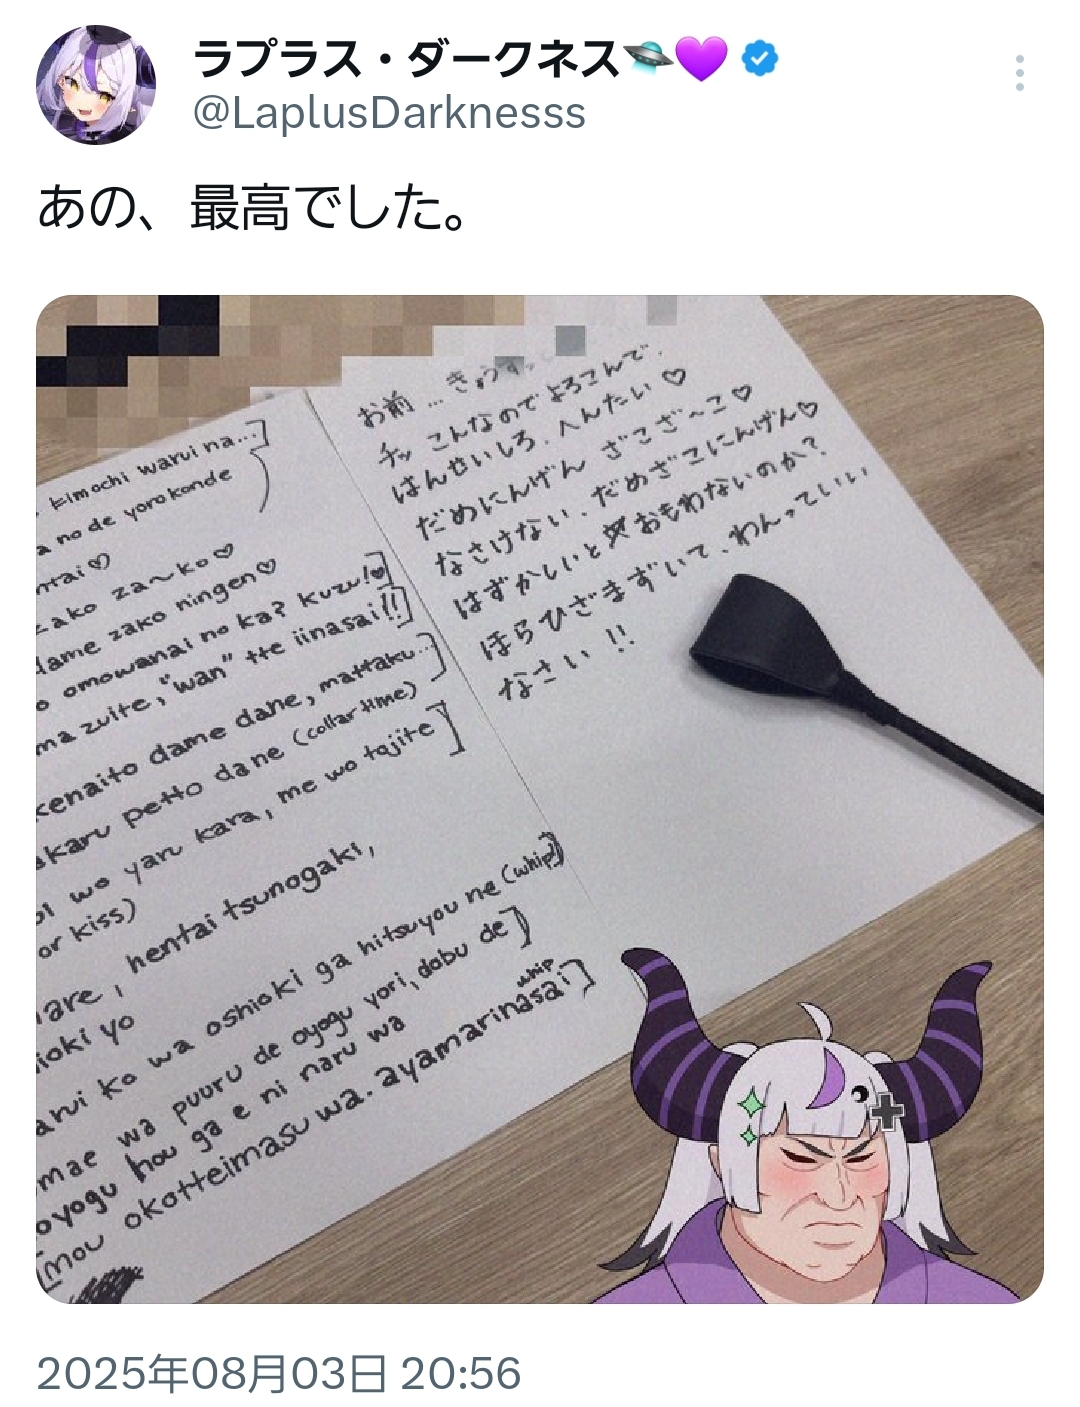 ラプラス・ダークネス🛸💜
@LaplusDarknesss
あの、最高でした。
kimochi warui na...]
a no de yorokonde
ntai♡
zako za~ko♡
dame zako ningen♡
o omowanai no ka? kuzu!♥]
ma zuite, "wan" tte iinasai!!]
kenaito dame dane, mattaku...]
akaru petto dane (collar time)
oi wo yaru kara, me wo tojite]
or kiss)
are, hentai tsunogaki,
ioki yo
arui ko wa oshioki ga hitsuyou ne (whip)]
mae wa puuru de oyogu yori, dobu de]
oyogu hou ga e ni naru wa
whip
[mou okotteimasu wa. ayamarinasai]
お前…きもっ
チッ こんなのでよろこんで.
はんせいしろ. へんたい♡
だめにんげん ざこざ~こ♡
なさけない. だめざこにんげん♡
はずかしいとおもわないのか?
ほらひざまずいて. わんっていい
なさい!!
2025年08月03日 20:56